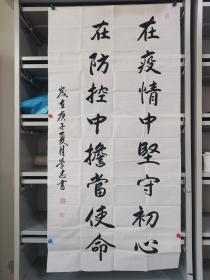 在疫情中堅守初心
在防控中擔當使命
歲在庚子夏月学志書